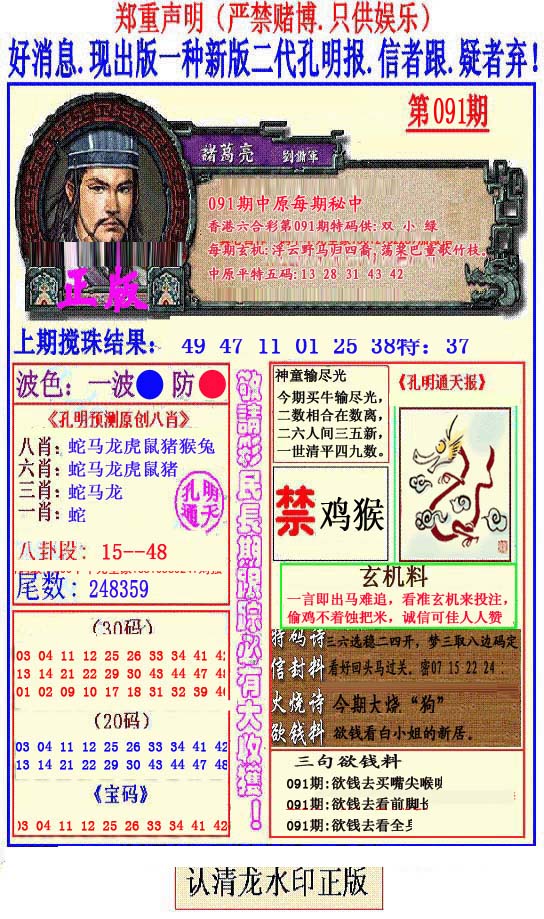 郑重声明（严禁赌博.只供娱乐）
好消息.现出版一种新版二代孔明报.信者跟.疑者弃!
第091期
諸葛亮 劉備軍
091期中原每期秘中
香港六合彩第091期特码供:双 小 绿
每期玄机:浮云野鸟归四裔,荡桨巴童歌竹枝.
中原平特五码:13 28 31 43 42
正版
上期搅珠结果: 49 47 11 01 25 38特: 37
波色: 一波 防
《孔明预测原创八肖》
八肖: 蛇马龙虎鼠猪猴兔
六肖: 蛇马龙虎鼠猪
三肖: 蛇马龙
一肖: 蛇
孔明通天
八卦段: 15--48
尾数: 248359
(30码)
03 04 11 12 25 26 33 34 41 42
13 14 21 22 29 30 43 44 47 48
01 02 09 10 17 18 31 32 39 40
(20码)
03 04 11 12 25 26 33 34 41 42
13 14 21 22 29 30 43 44 47 48
《宝码》
03 04 11 12 25 26 33 34 41 42
敬請彩民長期跟踪必有大收獲!
神童输尽光
今期买牛输尽光,
二数相合在数离,
二六人间三五新,
一世清平四九数。
《孔明通天报》
禁 鸡猴
玄机料
一言即出马难追，看准玄机来投注,
偷鸡不着蚀把米，诚信可佳人人赞
特码诗 三六选稳二四开，梦三取八边码定
信封料 看好回头马过关。密07 15 22 24
火烧诗 今期大烧“狗”
欲钱料 欲钱看白小姐的新居。
三句欲钱料
091期:欲钱去买嘴尖喉
091期:欲钱去看前脚
091期:欲钱去看全身
认清龙水印正版